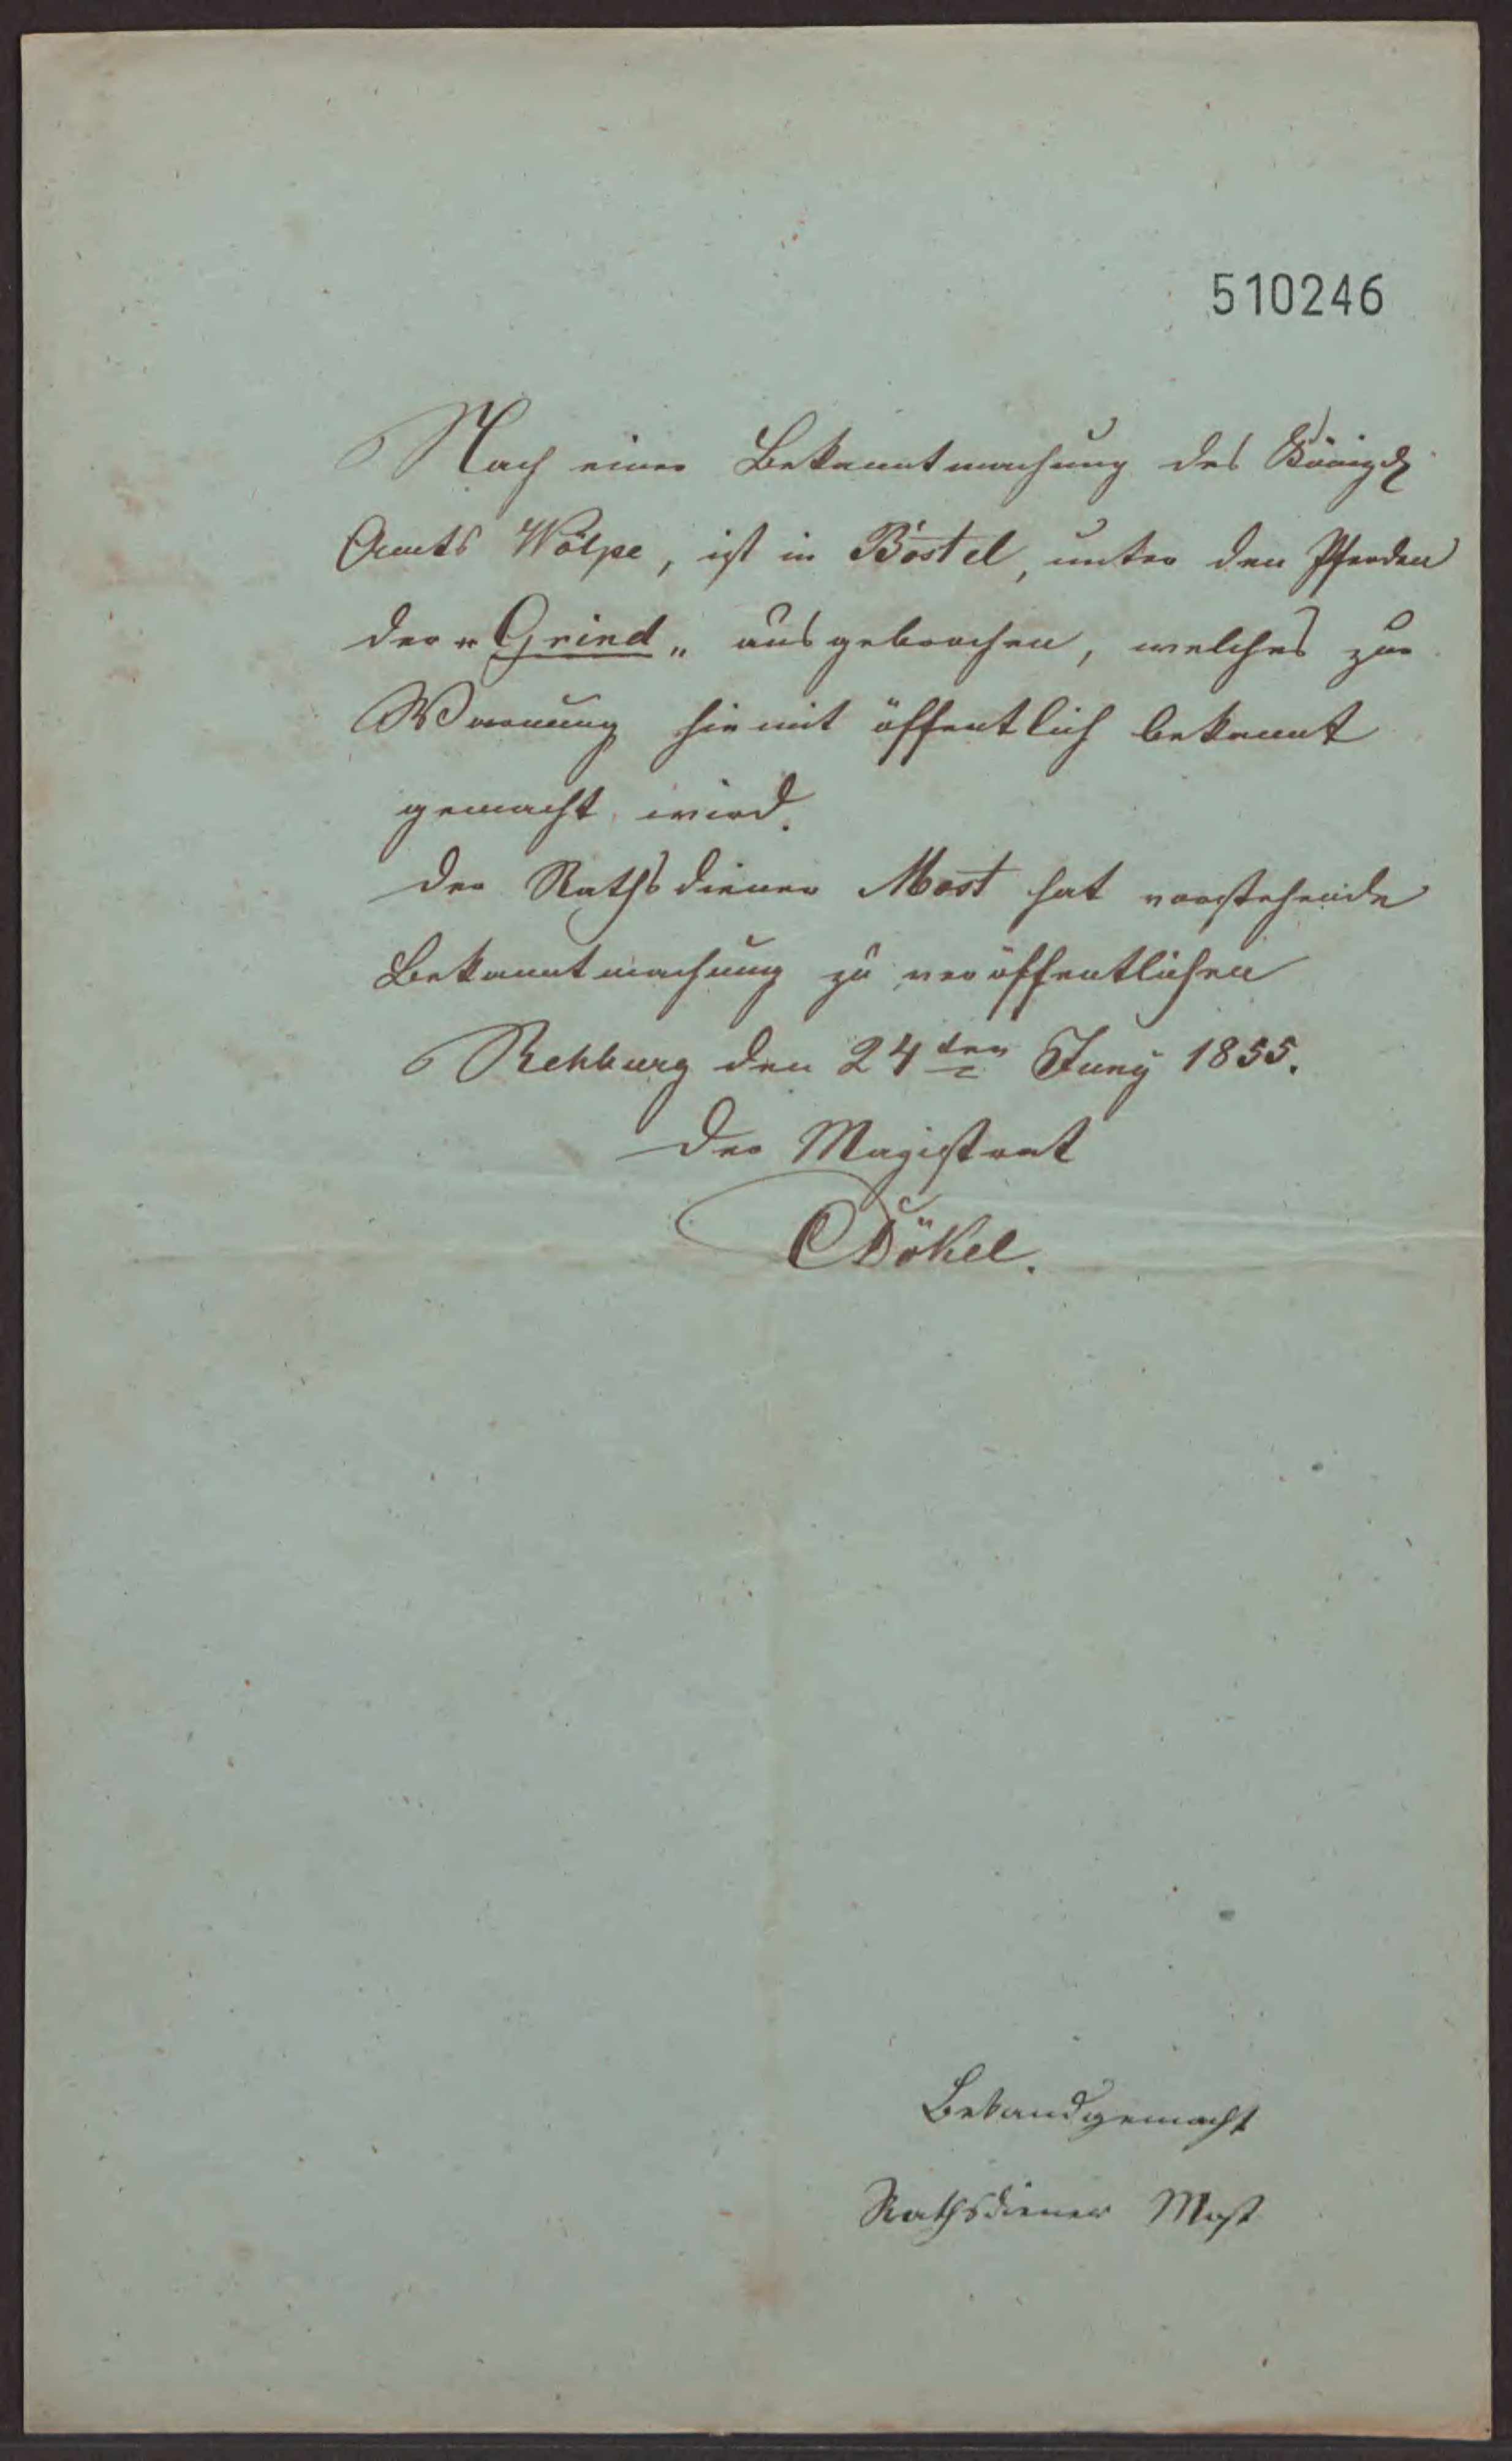 510246
Nach einer Bekanntmachung des Königl.
Amts Wölpe, ist in Bostel, unter den Pferden
der „Grind„ ausgebrochen, welches zur
Warnung hiemit öffentlich bekannt
gemacht wird.
Der Rathsdiener Most hat vorstehende
Bekanntmachung zu veröffentlichen
Rehburg den 24ten Juny 1855.
Der Magistrat
Dökel.
Bekandgemacht
Rathsdiener Most